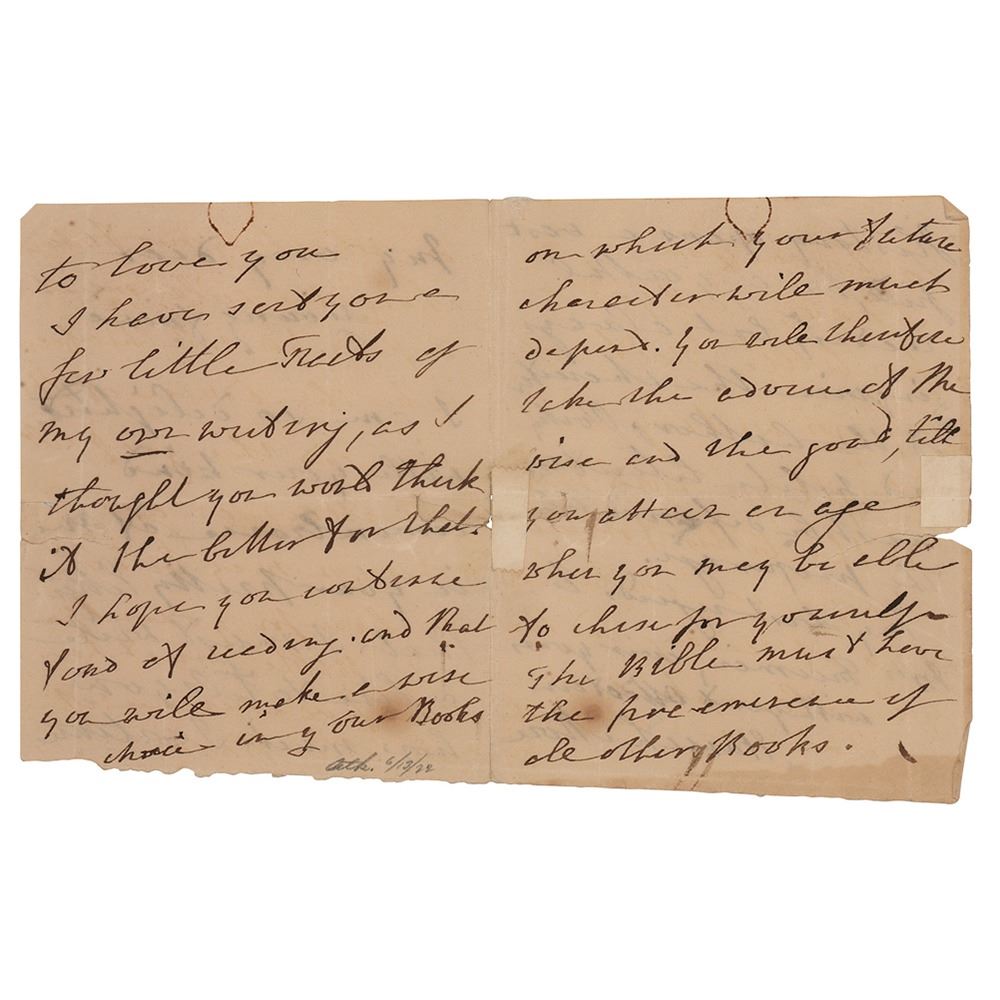 to love you
I have sent you a
few little Tracts of
my own writing, as I
thought you would think
it the better for that.
I hope you continue
fond of reading. and that
you will make a wise
choice in your Books
6/13/22
on which your future
character will much
depend. You will therefore
take the advice of the
wise and the good, till
you attain an age
when you may be able
to chuse for yourself
The Bible must have
the pre-eminence of
all other Books.